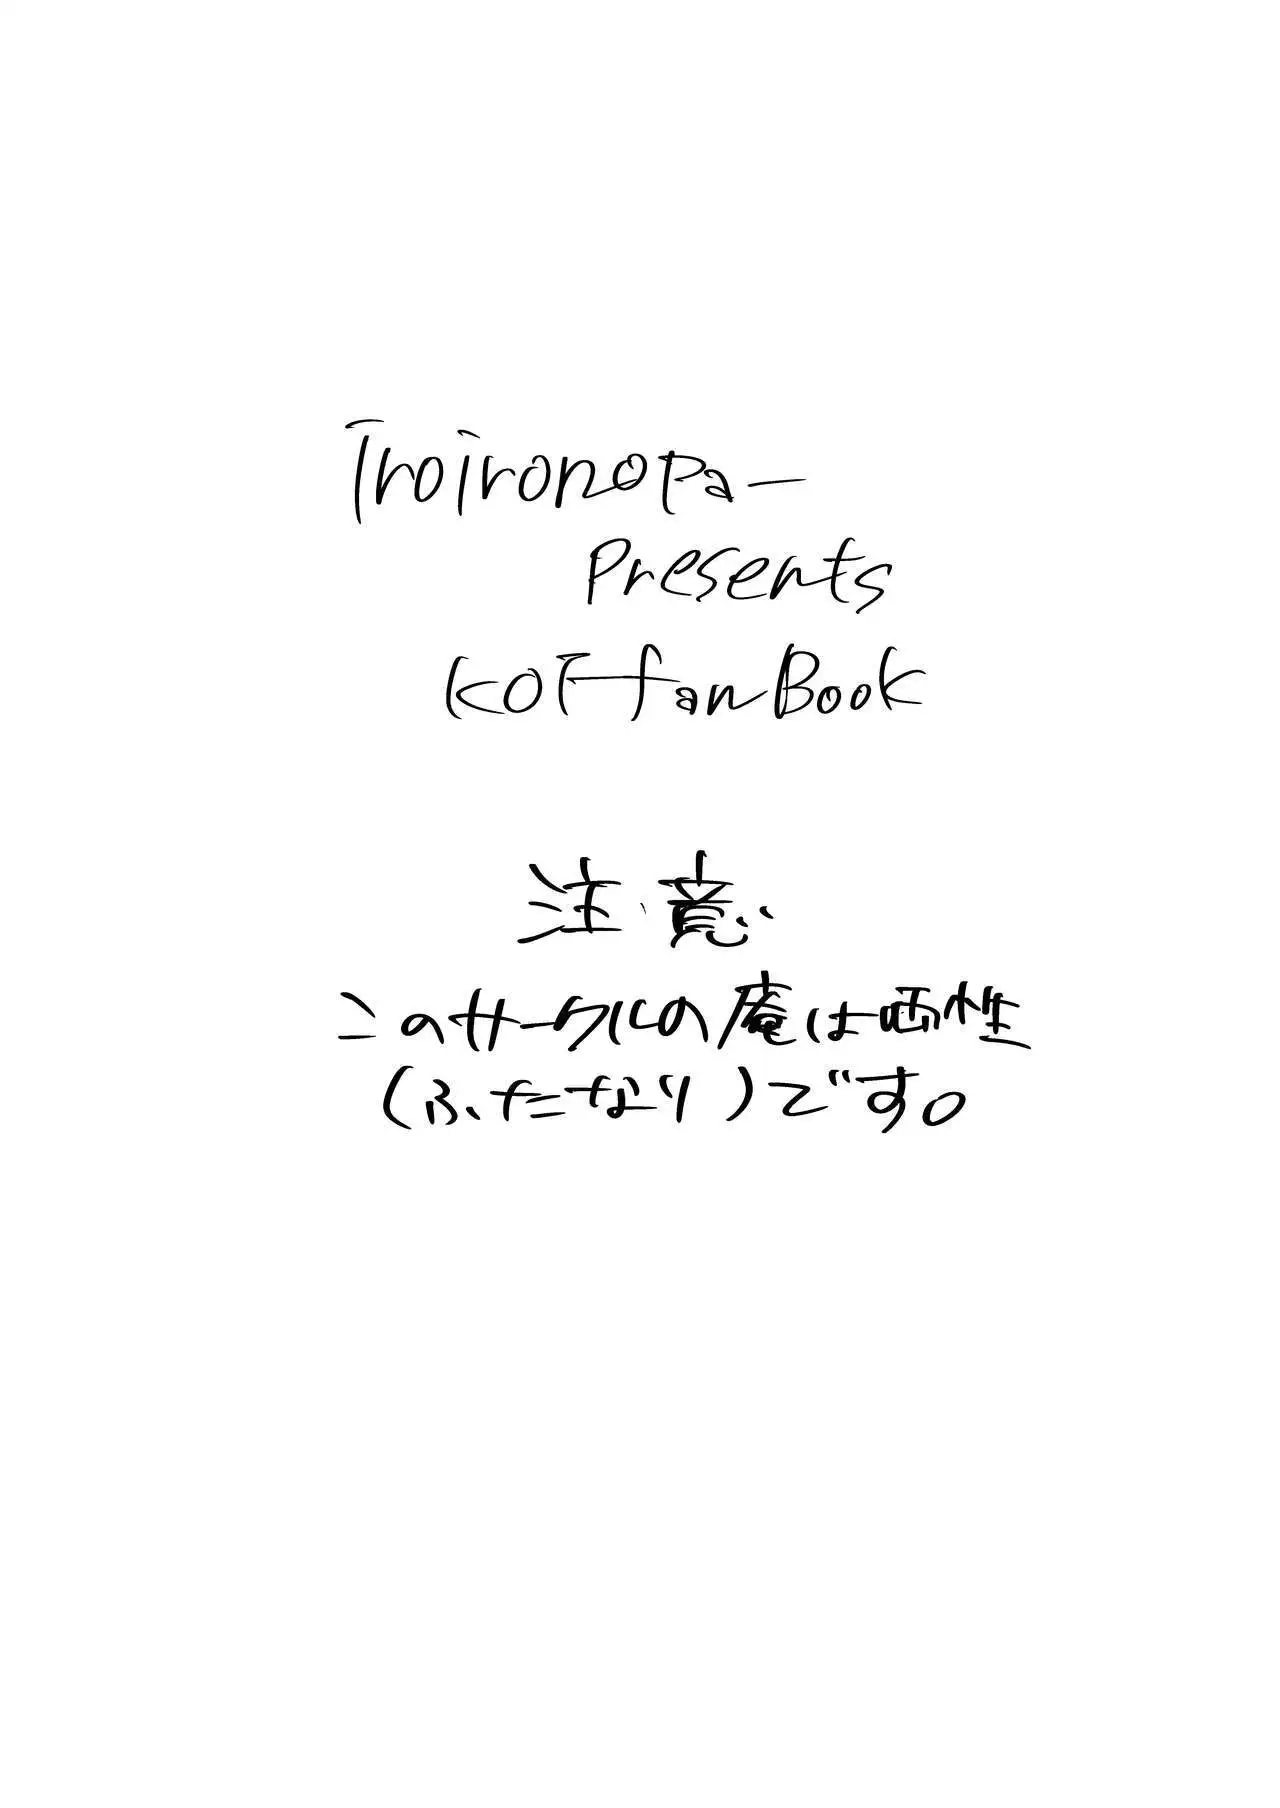 Iroironopa-
Presents
KOF fan Book
注意
このサークルの庵は両性
(ふたなり)です。